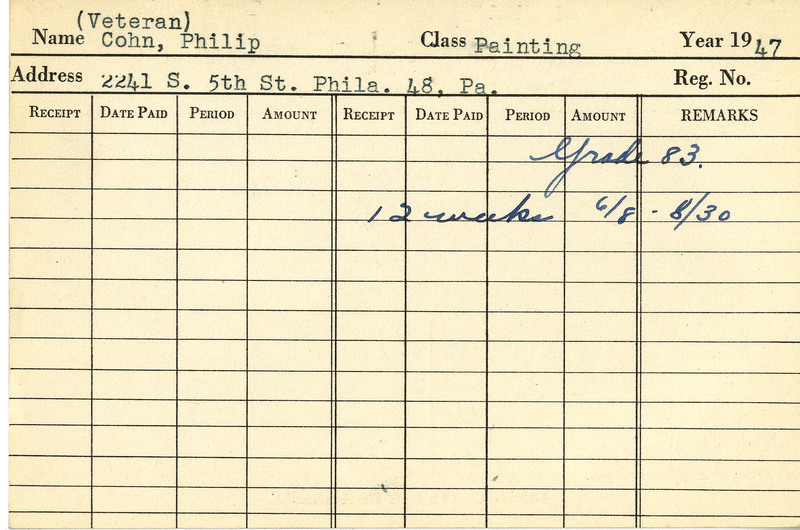 (Veteran)
Name Cohn, Philip Class Painting Year 1947
Address 2241 S. 5th St. Phila. 48, Pa. Reg. No.
RECEIPT DATE PAID PERIOD AMOUNT RECEIPT DATE PAID PERIOD AMOUNT REMARKS
Grade 83.
12 weeks 6/8 - 8/30